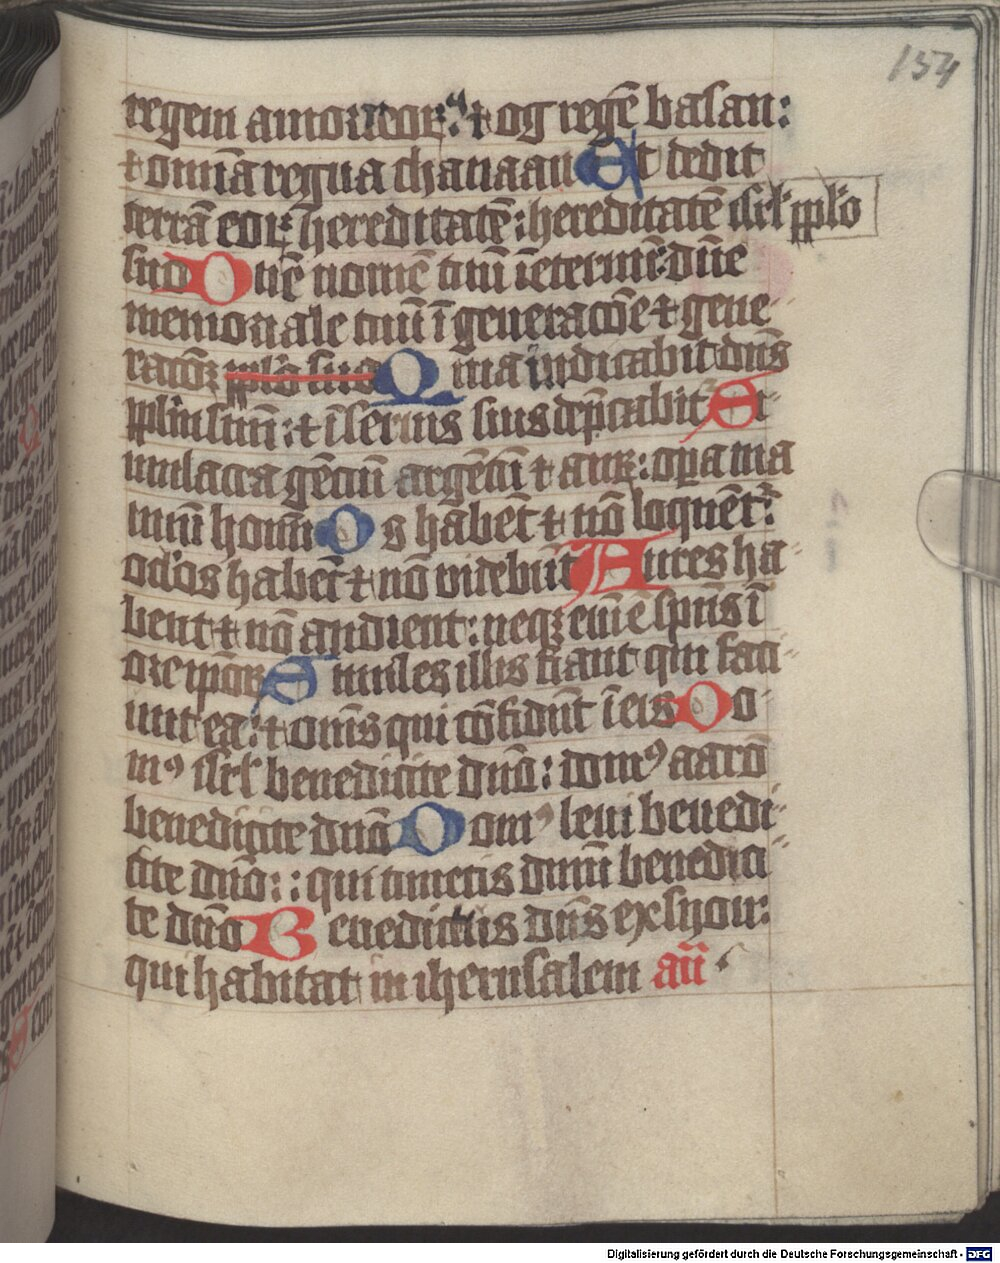 154
regem amorreorꝝ: ⁊ og regē basan:
⁊ omīa regna chanaan Et dedit
terrā eorꝝ hereditatē: hereditatē isrl' pplo
suo Dn̄e nomē tuū īeternū: dn̄e
memoriale tuū ī generacōe ⁊ gene-
racōꝝ pplo suo Quia iudicabit dn̄s
pplm̄ suū: ⁊ ī seruis suis dep̄cabit Si-
mulacra gēciū argētū ⁊ aurꝝ: oꝑa ma
nuū homīū Os habēt ⁊ nō loquēt:
oc'los habēt ⁊ nō videbūt Aures ha-
bent ⁊ nō audient: neqꝫ enī ē spūs ī
ore ipōꝝ Similes illis fiant qui faci-
unt ea: ⁊ om̄s qui cōfidūt ī eis Do-
mꝰ isrl' benedicite dn̄o: domꝰ aarō
benedicite dn̄o Domꝰ leui benedi-
cite dn̄o: : qui timetis dn̄m benedici-
te dn̄o Benedictus dn̄s ex syon:
qui habitat in iherusalem an̄
Digitalisierung gefördert durch die Deutsche Forschungsgemeinschaft - DFG